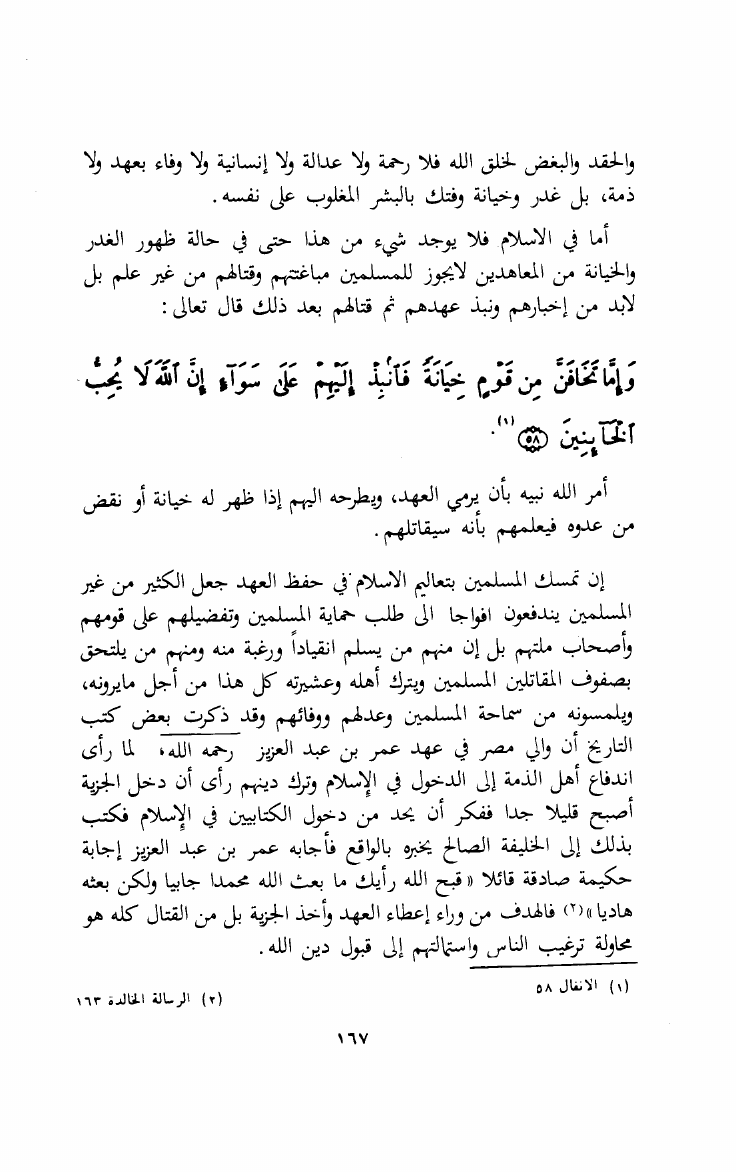 والحقد والبغض لخلق الله فلا رحمة ولا عدالة ولا إنسانية ولا وفاء بعهد ولا
ذمة، بل غدر وخيانة وفتك بالبشر المغلوب على نفسه.
أما في الاسلام فلا يوجد شيء من هذا حتى في حالة ظهور الغدر
والخيانة من المعاهدين لايجوز للمسلمين مباغتتهم وقتالهم من غير علم بل
لابد من إخبارهم ونبذ عهدهم ثم قتالهم بعد ذلك قال تعالى:
وَإِمَّا تَخَافَنَّ مِن قَوْمٍ خِيَانَةً فَٱنۢبِذْ إِلَيْهِمْ عَلَىٰ سَوَآءٍ إِنَّ ٱللَّهَ لَا يُحِبُّ
ٱلْخَآئِنِينَ ٥٨ (١).
أمر الله نبيه بأن يرمي العهد، ويطرحه اليهم إذا ظهر له خيانة أو نقض
من عدوه فيعلمهم بأنه سيقاتلهم.
إن تمسك المسلمين بتعاليم الاسلام في حفظ العهد جعل الكثير من غير
المسلمين يندفعون افواجا الى طلب حماية المسلمين وتفضيلهم على قومهم
وأصحاب ملتهم بل إن منهم من يسلم انقياداً ورغبة منه ومنهم من يلتحق
بصفوف المقاتلين المسلمين ويترك أهله وعشيرته كل هذا من أجل مايرونه،
ويلمسونه من سماحة المسلمين وعدلهم ووفائهم وقد ذكرت بعض كتب
التاريخ أن والي مصر في عهد عمر بن عبد العزيز رحمه الله، لما رأى
اندفاع أهل الذمة إلى الدخول في الإسلام وترك دينهم رأى أن دخل الجزية
أصبح قليلا جدا ففكر أن يحد من دخول الكتابيين في الإسلام فكتب
بذلك إلى الخليفة الصالح يخبره بالواقع فأجابه عمر بن عبد العزيز إجابة
حكيمة صادقة قائلا «قبح الله رأيك ما بعث الله محمدا جابيا ولكن بعثه
هاديا»(٢) فالهدف من وراء إعطاء العهد وأخذ الجزية بل من القتال كله هو
محاولة ترغيب الناس واستمالتهم إلى قبول دين الله.
(١) الانفال ٥٨
(٢) الرسالة الخالدة ١٦٣
١٦٧